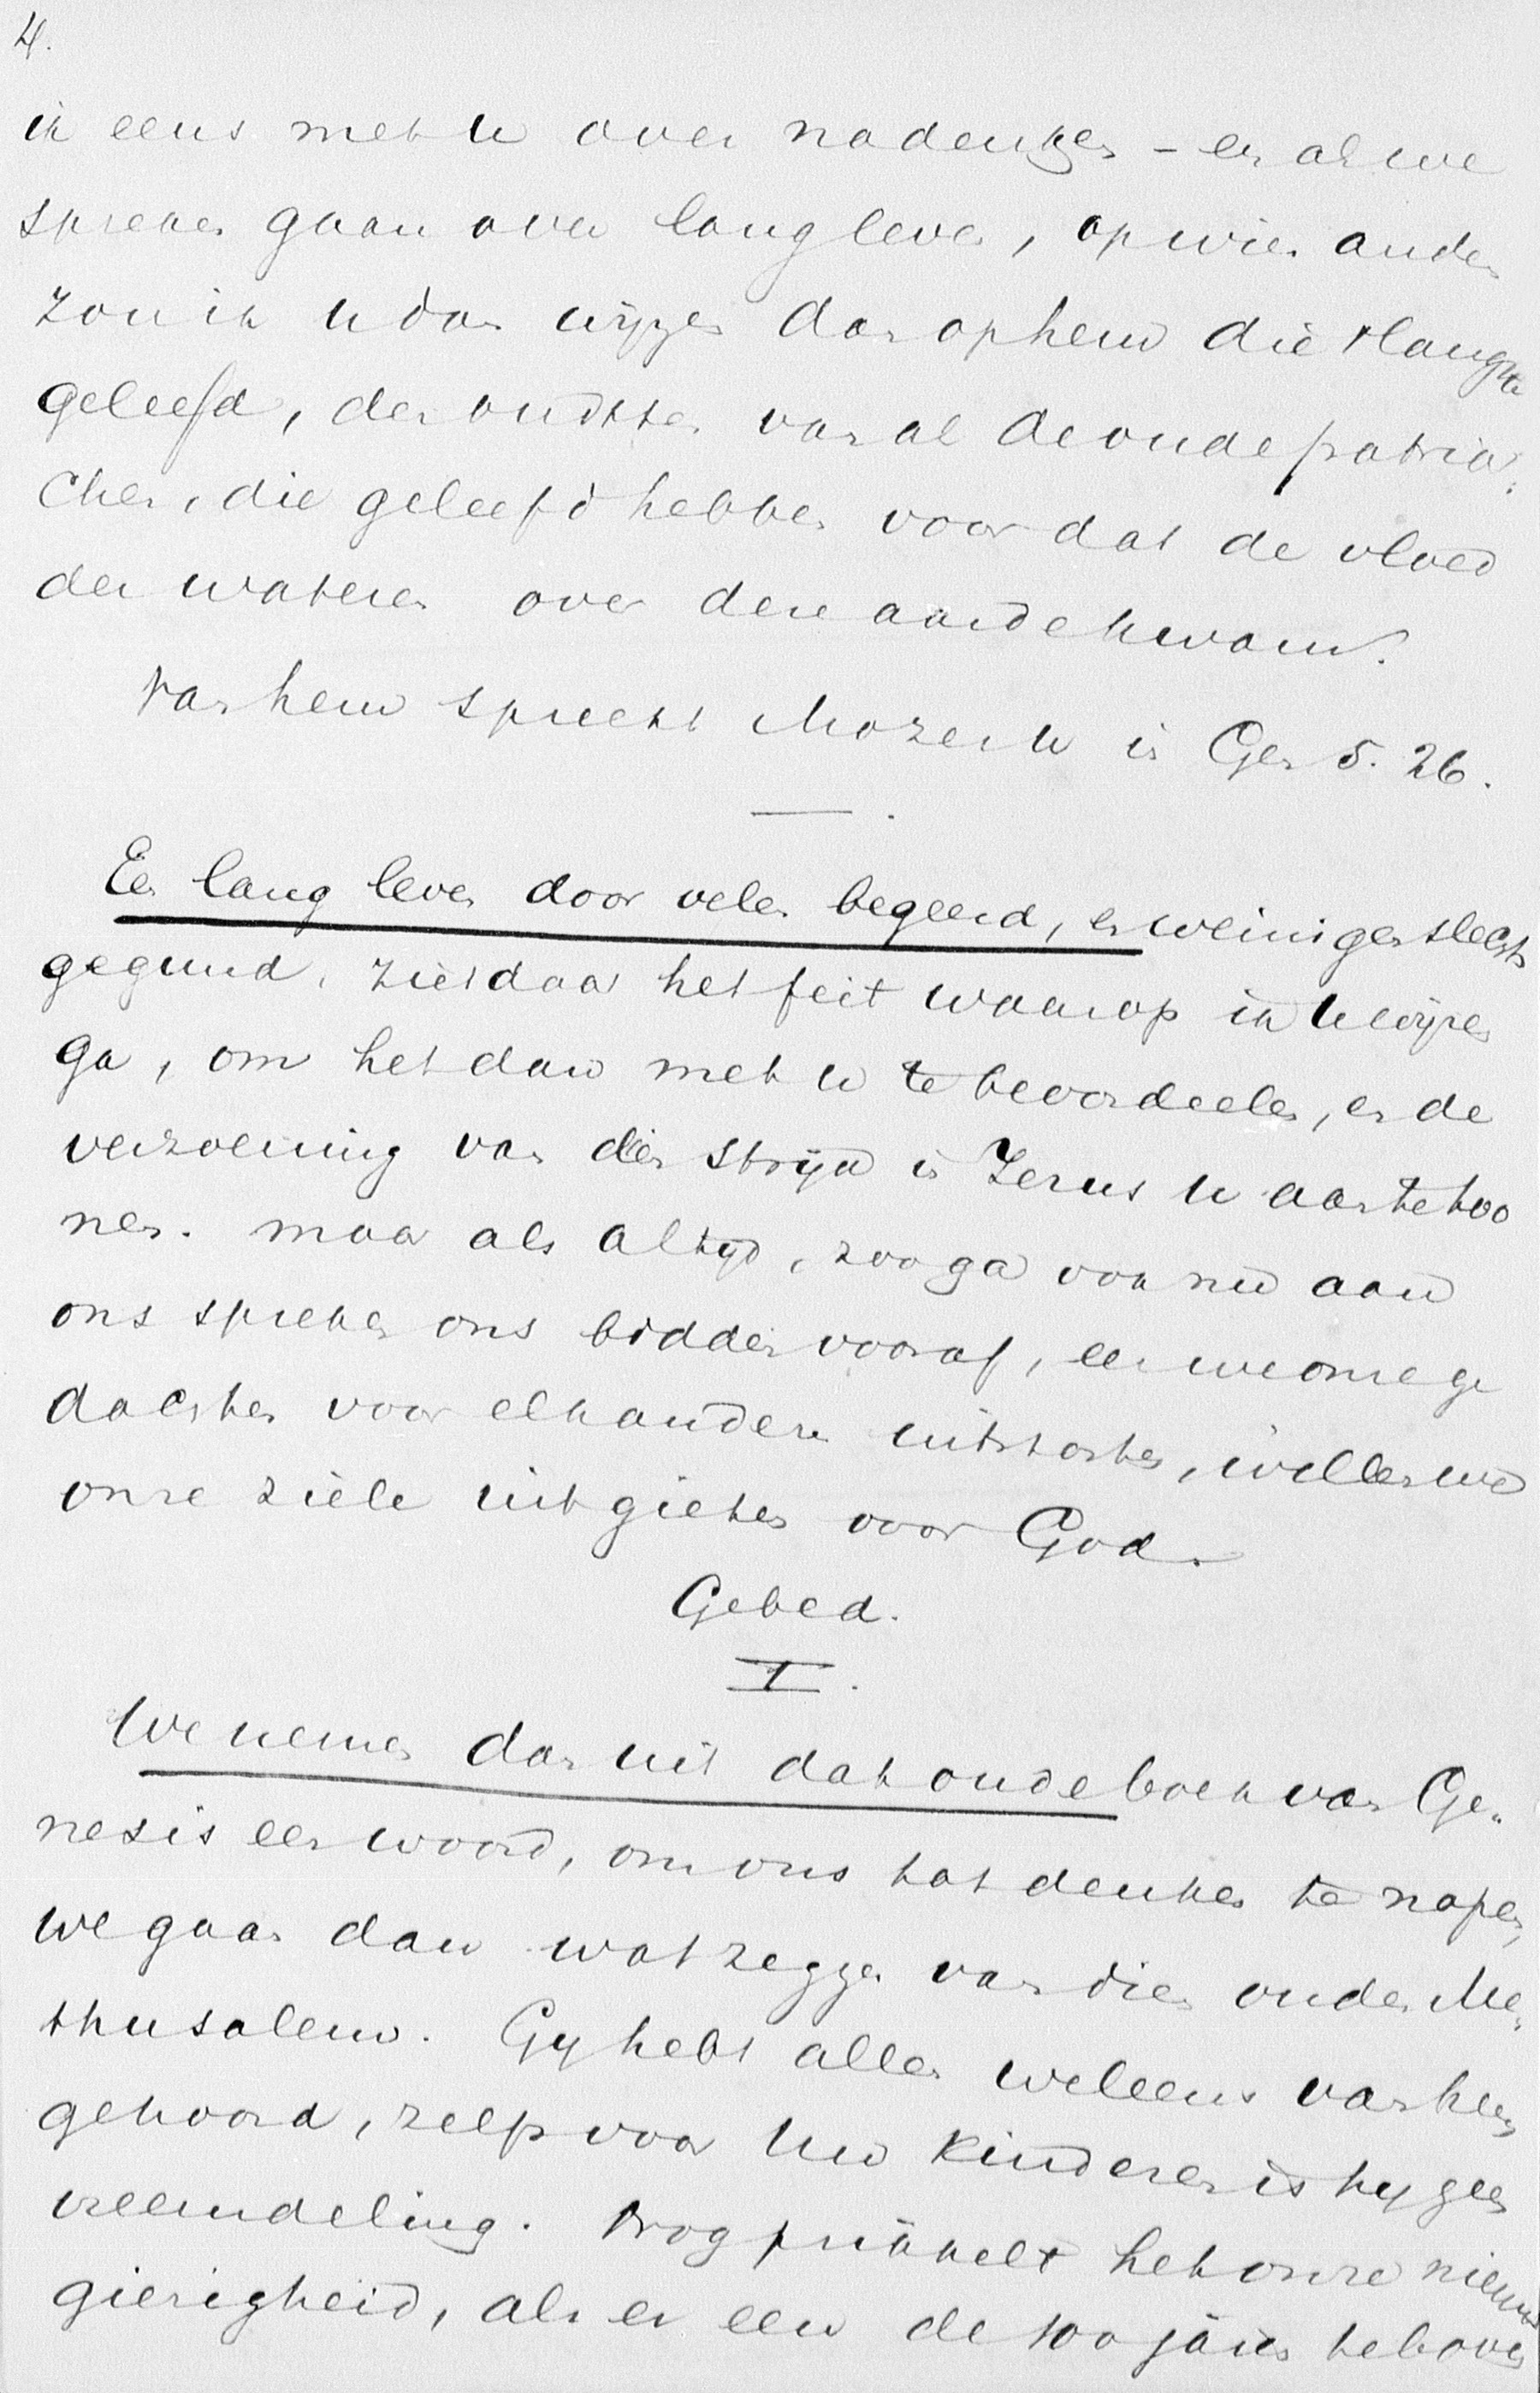 4.
ik eens met u over nadenken – en als we
spreken gaan over lang leven, op wien anders
zou ik u dan wijzen dan op hem die 't langst
geleefd, den oudsten van al de oude patriar
chen, die geleefd hebben voor dat de vloed
der wateren over deze aarde kwam.
Van hem spreekt Mozes u in Gen 5. 26.
Een lang leven door velen begeerd, en weinigen slechts
gegund, ziet daar het feit waarop ik u wijzen
ga, om het dan met u te beoordeelen, en de
verzoening van dien strijd in Jezus u aan te too
nen. maar als altijd, zoo ga ook nu aan
ons spreken ons bidden vooraf, eer we onze ge
dachten voor elkanderen uitstorten, willen we
onze ziele uitgieten voor God.
Gebed.
I.
We nemen dan uit dat oude boek van Ge„
nesis een woord, om ons tot denken te nopen,
we gaan dan wat zeggen van dien ouden Me„
thusalem. Gij hebt allen weleens van hem
gehoord, zelfs voor uw kinderen is hy geen
vreemdeling. Nog prikkelt het onze nieuws
gierigheid, als er een de 100 jaren te boven